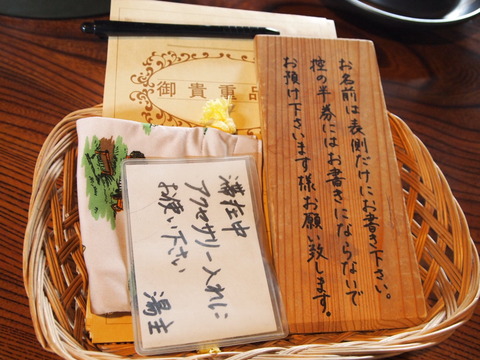 御貴重品
お名前は表側だけにお書き下さい。
控の半券にはお書きにならないで
お預け下さいます様お願い致します。
滞在中
アクセサリー入れに
お使い下さい
湯主